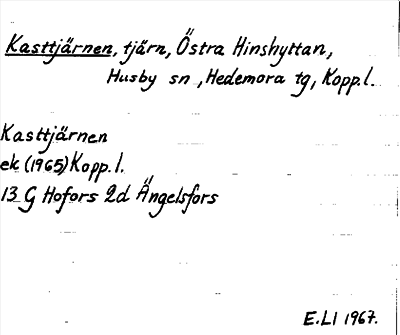 Kasttjärnen, tjärn, Östra Hinshyttan,
Husby sn, Hedemora tg, Kopp.l.
Kasttjärnen
ek (1965) Kopp.l.
13 G Hofors 2d Ängelsfors
E.Ll 1967.